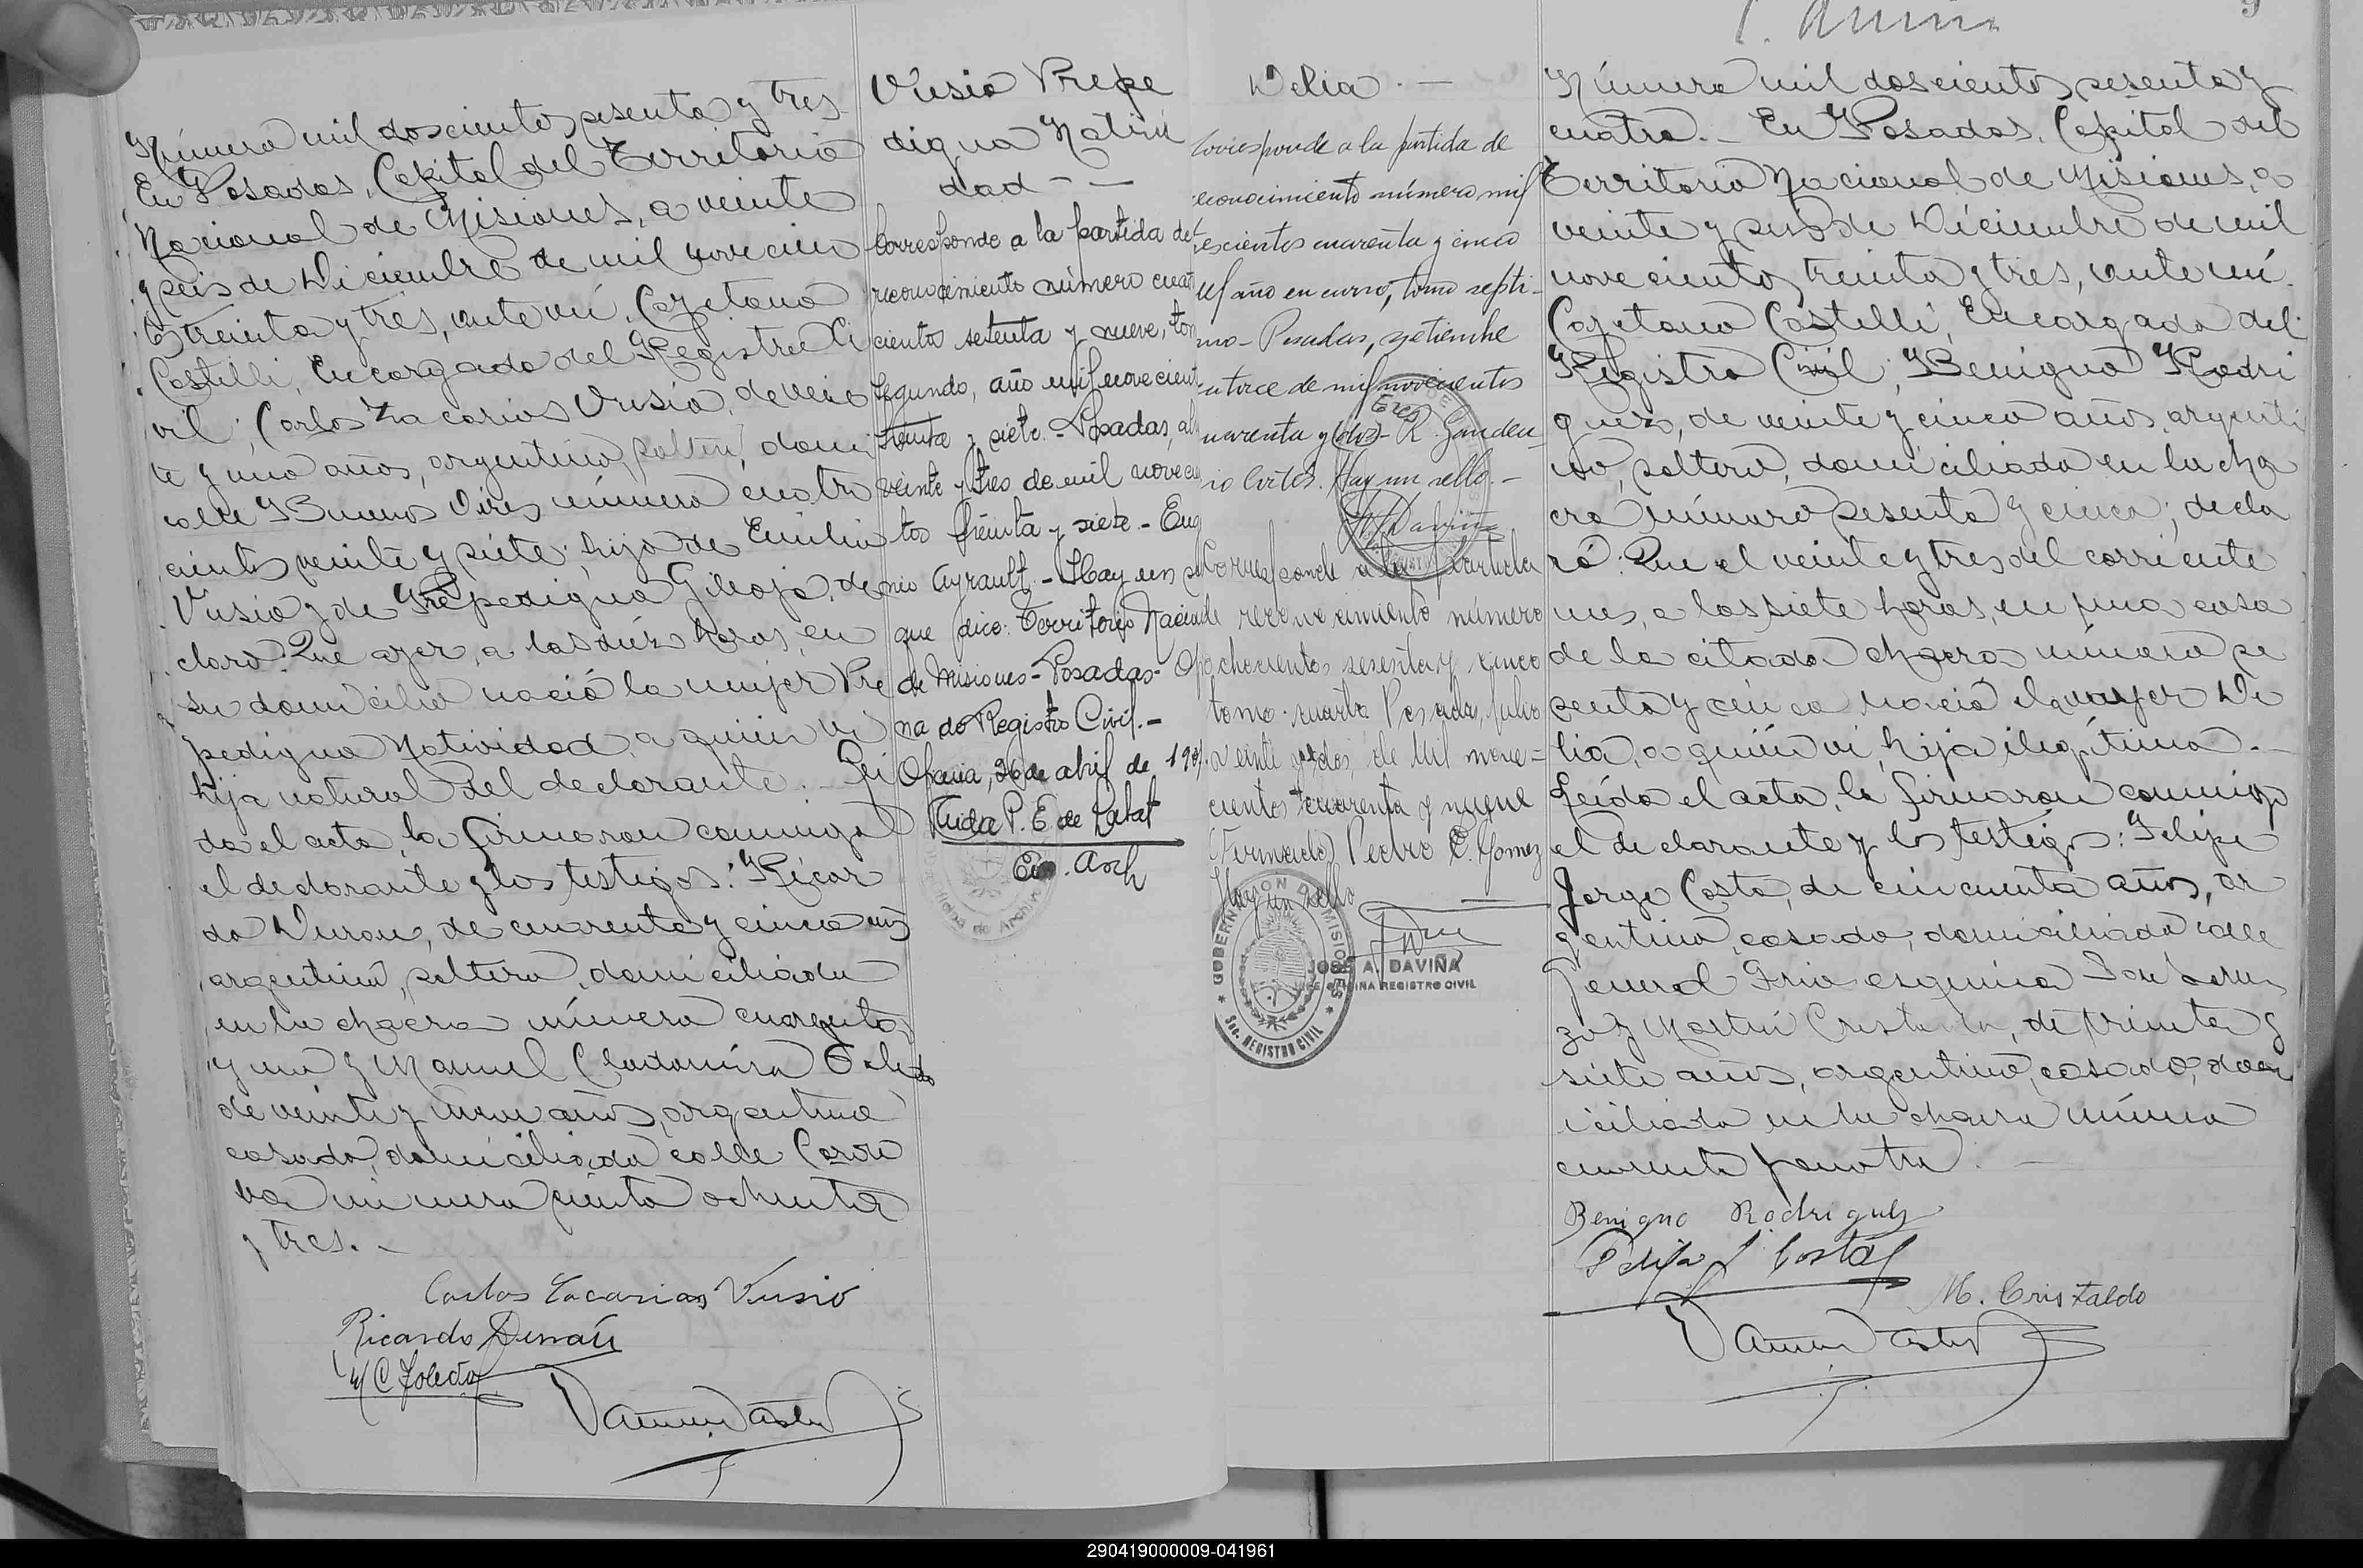 Número mil doscientos sesenta y tres.
En Posadas, Capital del Territorio
Nacional de Misiones, a veinte
y seis de Diciembre de mil novecien
tos treinta y tres, ante mí, Cayetano
Castelli, Encargado del Registro Ci
vil; Carlos Zacarias Vusio, de vein
te y uno años, argentino, soltero, domi
calle Buenos Aires número cuatro
cientos veinte y siete; hijo de Emilio
Vusio y de Prepedigna, de
claró: Que ayer, a las diez horas, en
su domicilio nació la mujer Pre
pedigna Natividad, a quien vi
hija natural del declarante.- Leí
da el acta, la firmaron conmigo
el declarante y los testigos: Ricar
do Duran, de cuarenta y cinco años
argentino, soltero, domiciliado
en la chacra número cuarenta
y uno y Manuel Clodomiro Toledo
de veinte y nueve años, argentino
casado, domiciliado calle Cordo
ba número ciento ochenta
y tres.-
Carlos Zacarias Vusio
Ricardo Durán
M C Toledo
Vusio Prepe
digna Nativi
dad - -
Corresponde a la partida de
reconocimiento número cuatro
cientos setenta y nueve, tom
segundo, año mil novecient
treinta y siete.- Posadas, ab
veinte y tres de mil novecien
tos treinta y siete.- Eug
nio Ayrault.- Hay un se
que dice: Territorio Nacional
de Misiones - Posadas - Ofi
na de Registro Civil.-
Oficina, 26 de abril de 19
P. E. de
Delia.-
Corresponde a la partida de
reconocimiento número mil
trescientos cuarenta y cinco
del año en curso, tomo septi-
mo- Posadas, setiembre
catorce de mil novecientos
cuarenta y dos)- R. Gauden
io Cortés. Hay un sello.-
Corresponde a la partida
de reconocimiento número
ochocientos sesenta y cinco
tomo cuarto Posadas, Julio
veinte y dos, de Mil nove-
cientos cuarenta y nueve
(Firmado) Pedro E. Gomez
Hay un sello
GOBERNACION DE MISIONES
Sec. REGISTRO CIVIL
JOSE A. DAVIÑA
OFICINA REGISTRO CIVIL
Número mil doscientos sesenta y
cuatro.- En Posadas, Capital del
Territorio Nacional de Misiones, a
veinte y seis de Diciembre de mil
novecientos treinta y tres, ante mí.
Cayetano Castelli, Encargado del
Registro Civil; Benigno Rodri
guez, de veinte y cinco años, argenti
no, soltero, domiciliado en la cha
cra número sesenta y cinco; decla
ró: Que el veinte y tres del corriente
mes, a las siete horas, en una casa
de la citada chacra número se
senta y cinco nació la mujer De
lia, a quien vi, hija ilegítima.-
Leída el acta, la firmaron conmigo
el declarante y los testigos: Felipe
Jorge Costa, de cincuenta años, ar
gentino, casado, domiciliado calle
General Frias esquina San Loren
zo y Martin Cristaldo, de treinta y
siete años, argentino, casado, dom
iciliado en la chacra número
cuarenta y cuatro.-
Benigno Rodriguez
Felipe J Costa
M. Cristaldo
290419000009-041961